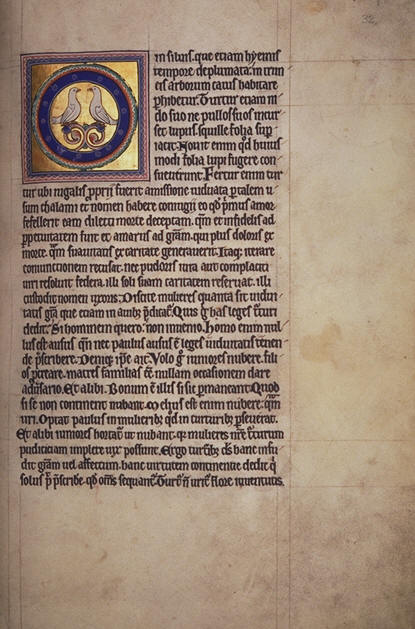 32
in sinus, que etiam hyemis
tempore deplumata in trun
cis arborum cauis habitare
phibetur. Turtur etiam ni
do suo ne pullos suos incur
set lupus, squille folia sup
iacit. Nouit enim qd huius
modi folia lupi fugere con
sueuerunt. Fertur enim tur
tur ubi iugalis proprii fuerit amissione uiduata ptalem u
sum thalami et nomen habere
fefellerit eam dilecti morte deceptam. qm et infidelis ad
ppetuitatem fuit et amarus ad gram. qui plus doloris ex
morte. qm suauitatis ex caritate generauerit. Itaq; iterare
coniunctionem recusat. nec pudoris iura aut complaciti
uiri resoluit federa. illi soli suam caritatem reseruat. illi
custodit nomen uxoris. Discite mulieres quanta sit uidui
tatis gra que etiam in auibs pdicat. Quis g has leges turturi
dedit. Si hominem quero. non inuenio. Homo enim nul
lus est ausus qm nec paulus ausus e leges uiduitatis tenen
de pscribere. Deniq; ipse ait. Volo g iuniores nubere. fili
os pcreare. matres familias ee. nullam occasionem dare
aduersario. Et alibi. Bonum e illis si sic pmaneant. Quod
si se non continent nubant. melius est enim nubere. qm
uri. Optat paulus in mulieribs qd in turturibs pseuerat.
Et alibi iuniores hortat ut nubant. qr mulieres nre turturum
pudiciciam implere uix possunt. Ergo turturibs ds hanc infu
dit gram uel affectum. hanc uirtutem continentie dedit q
solus pt pscribe. qd oms sequant. Turtur n urit flore iuuentutis.